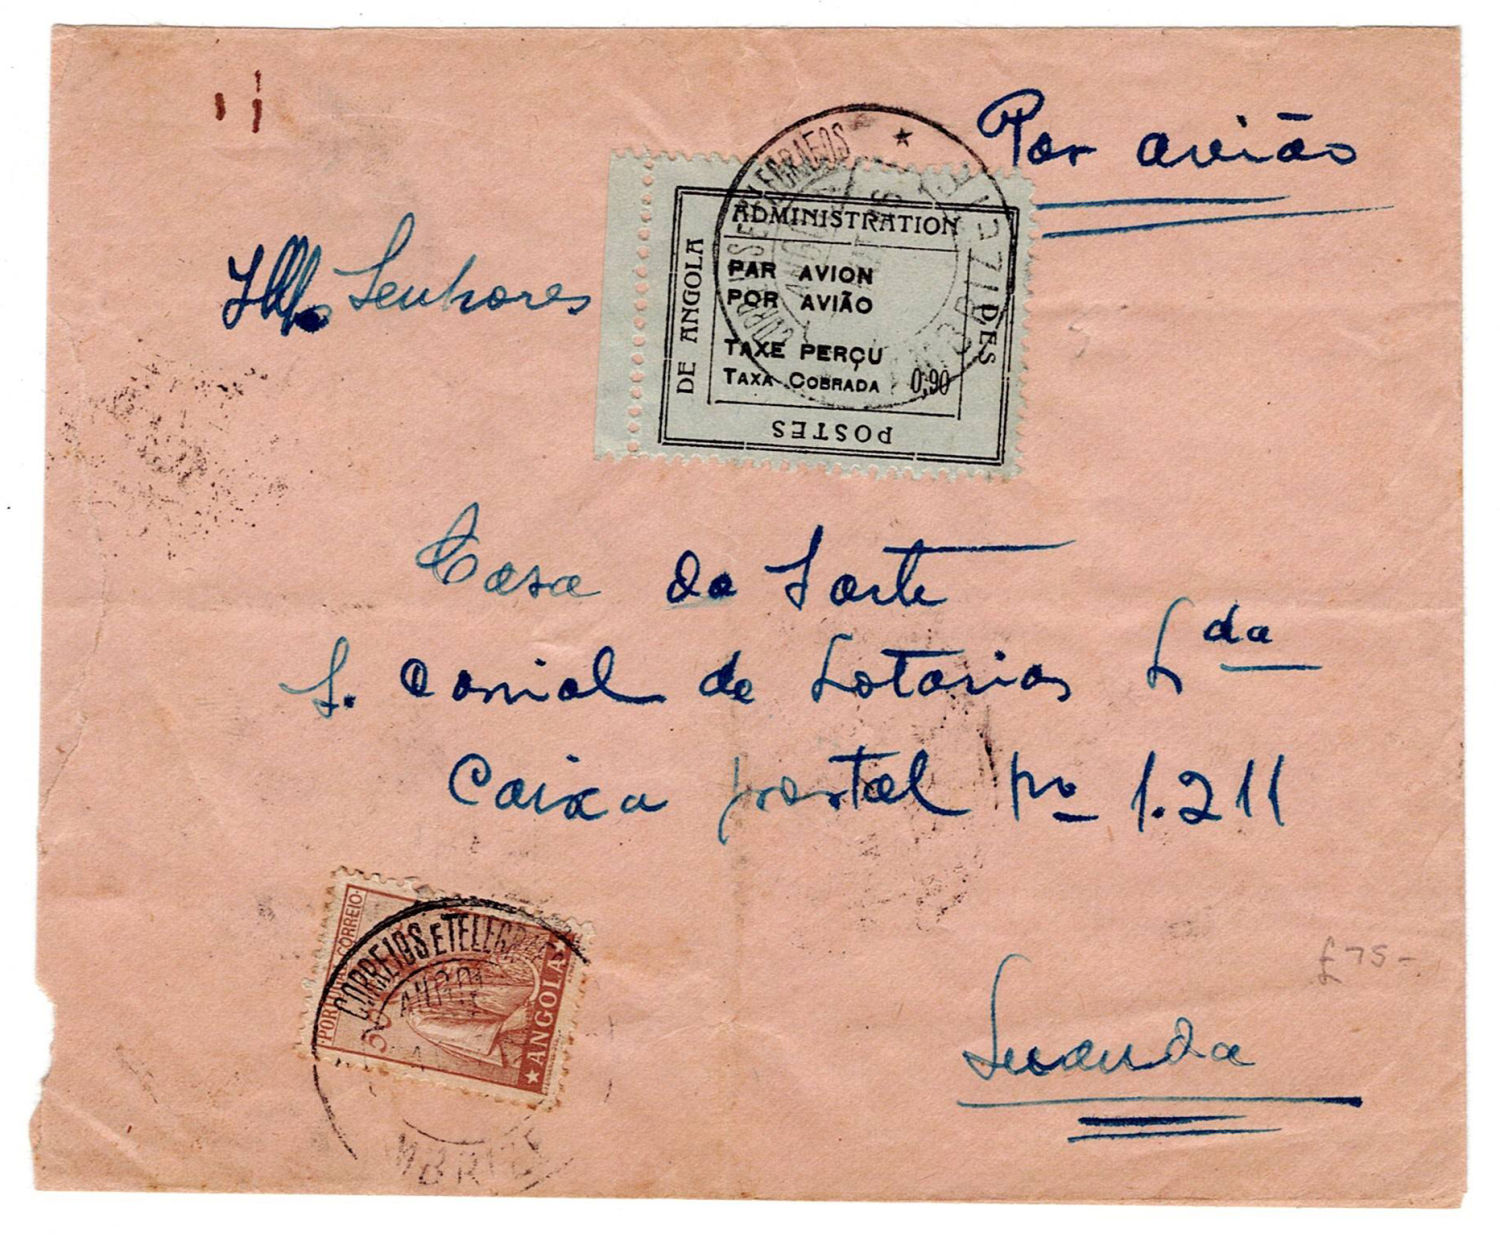 Por avião
Senhores
CORREIOS E TELEGRAFOS
ADMINISTRATION
DES
POSTES
DE ANGOLA
PAR AVION
POR AVIÃO
TAXE PERÇU
TAXA COBRADA 0,90
Casa da Sorte
S. Comial de Lotarias Lda
Caixa postal nº 1.211
Luanda
£75-
CORREIO
50
★ANGOLA★
CORREIOS E TELEGRAF
ANGOLA
AMBRIZ